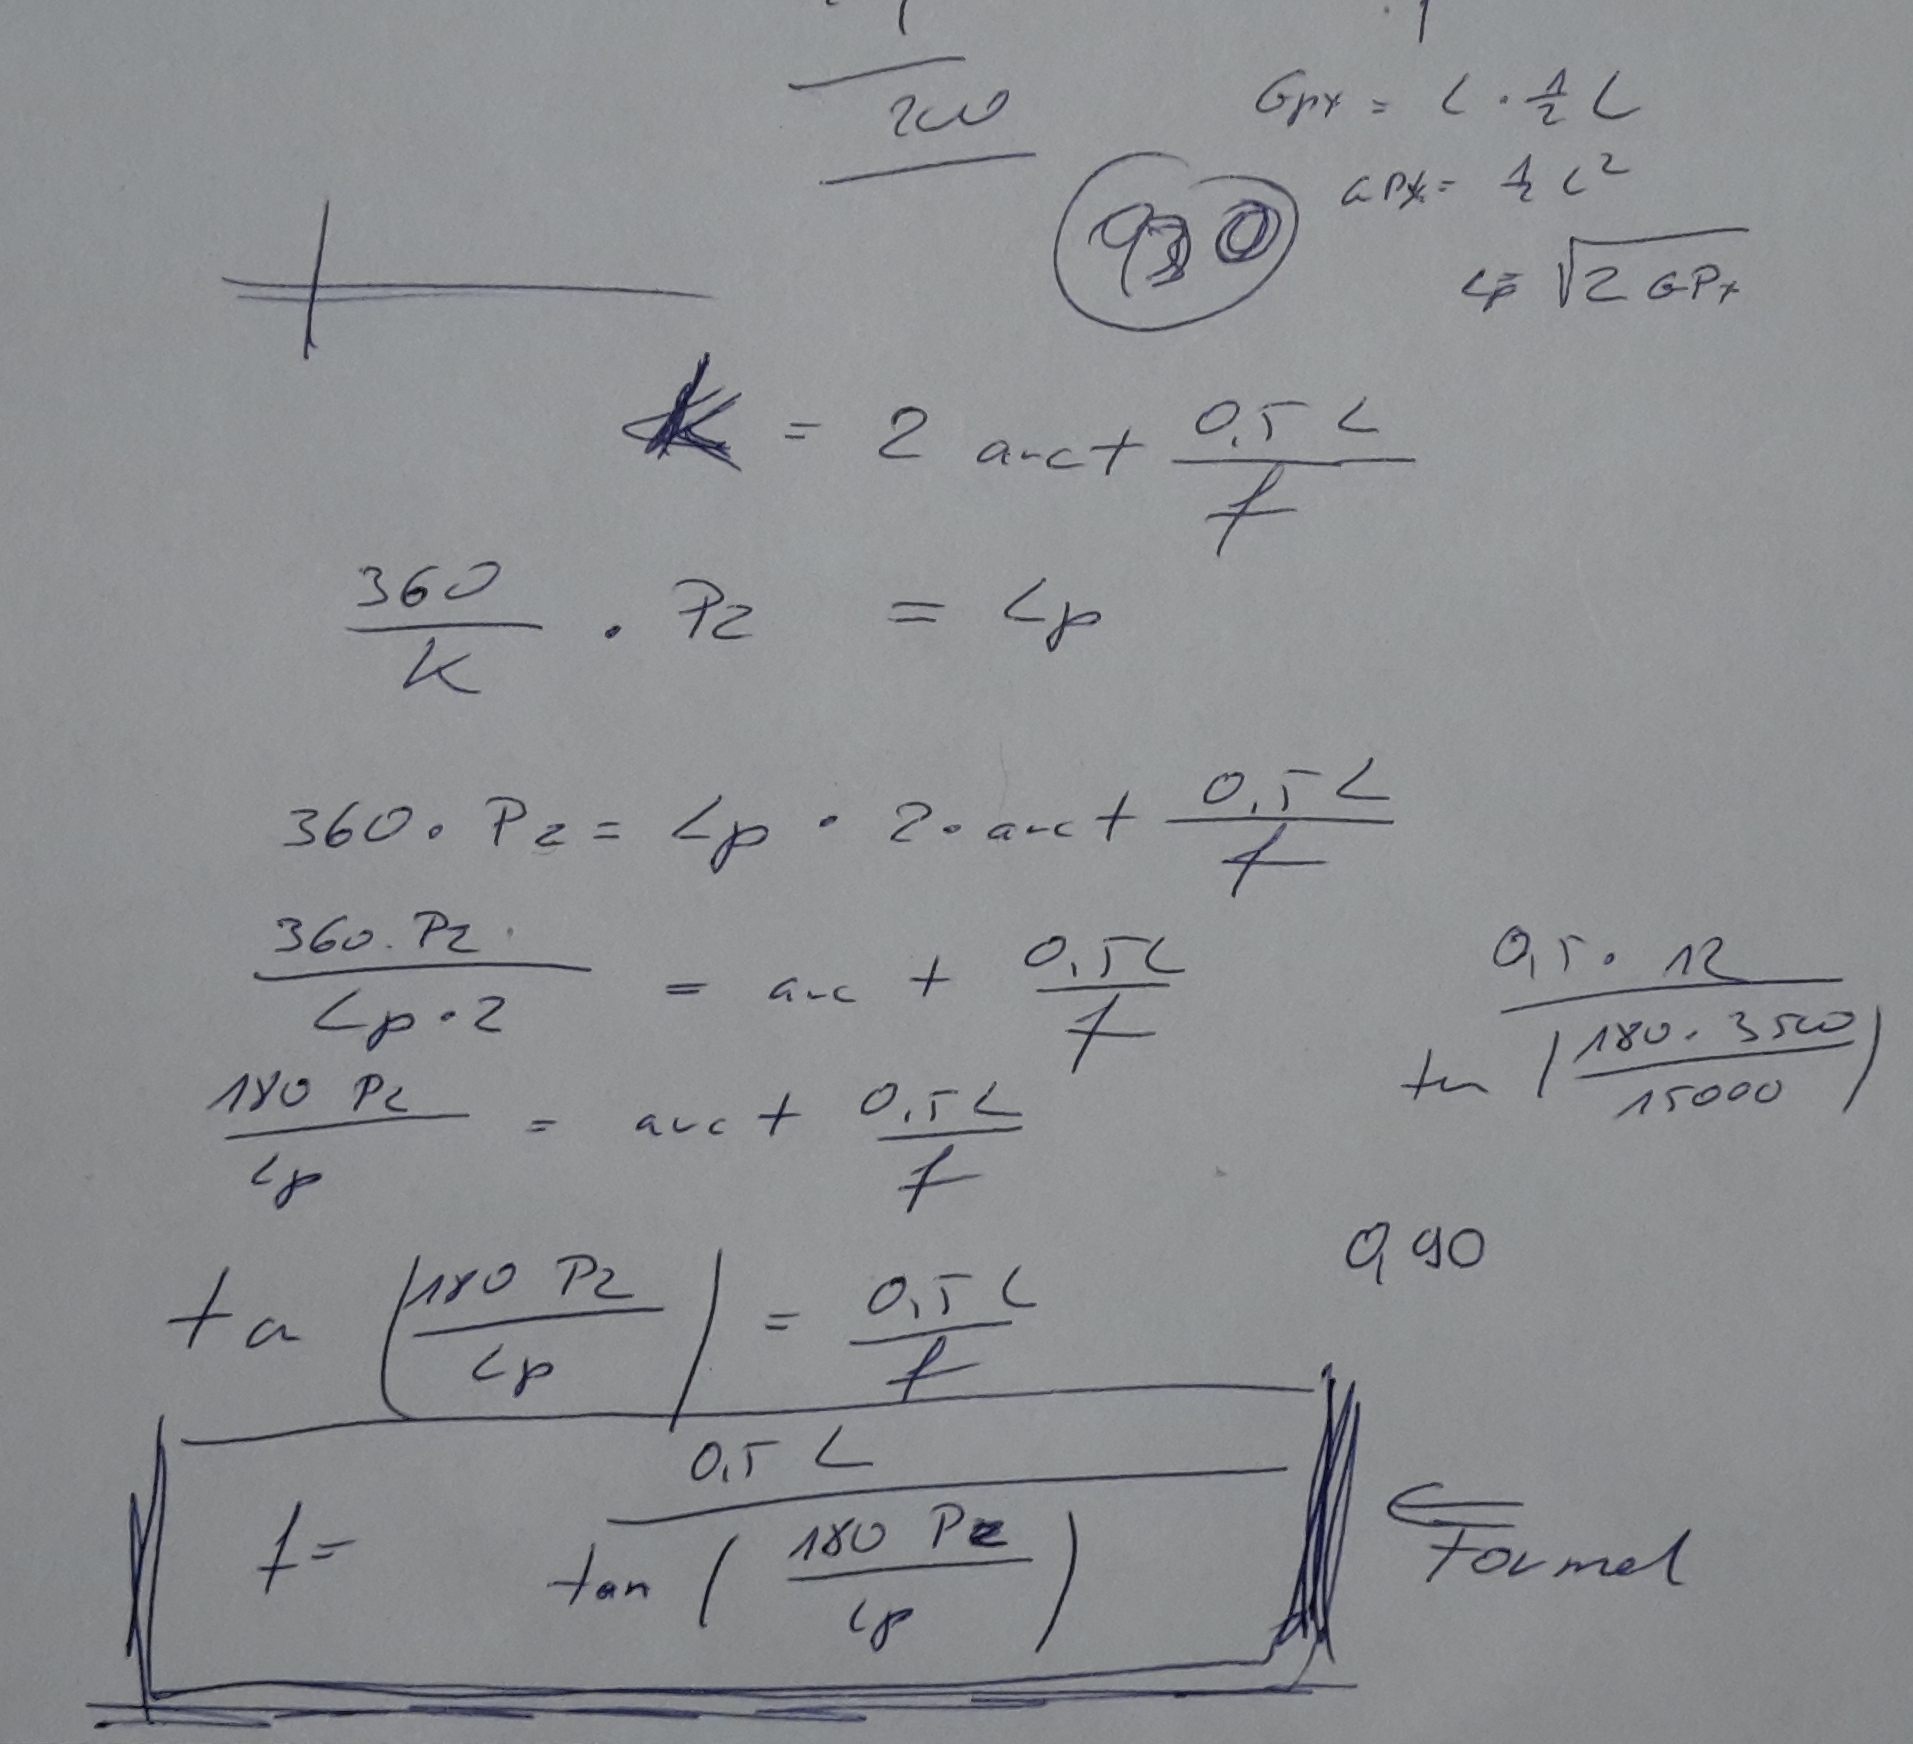 200
Gpx = L · 1/2 L
GPx = 1/2 L²
Lp = √2 GPx
K = 2 arct 0,5 L / f
360 / K · Pz = Lp
360 · Pz = Lp · 2 · arct 0,5 L / f
360 · Pz / Lp · 2 = arc t 0,5 L / f
0,5 · 12 / tan (180 · 3500 / 15000)
180 Pz / Lp = arc t 0,5 L / f
0,90
ta (180 Pz / Lp) = 0,5 L / f
f = 0,5 L / tan (180 Pz / Lp)
Formel